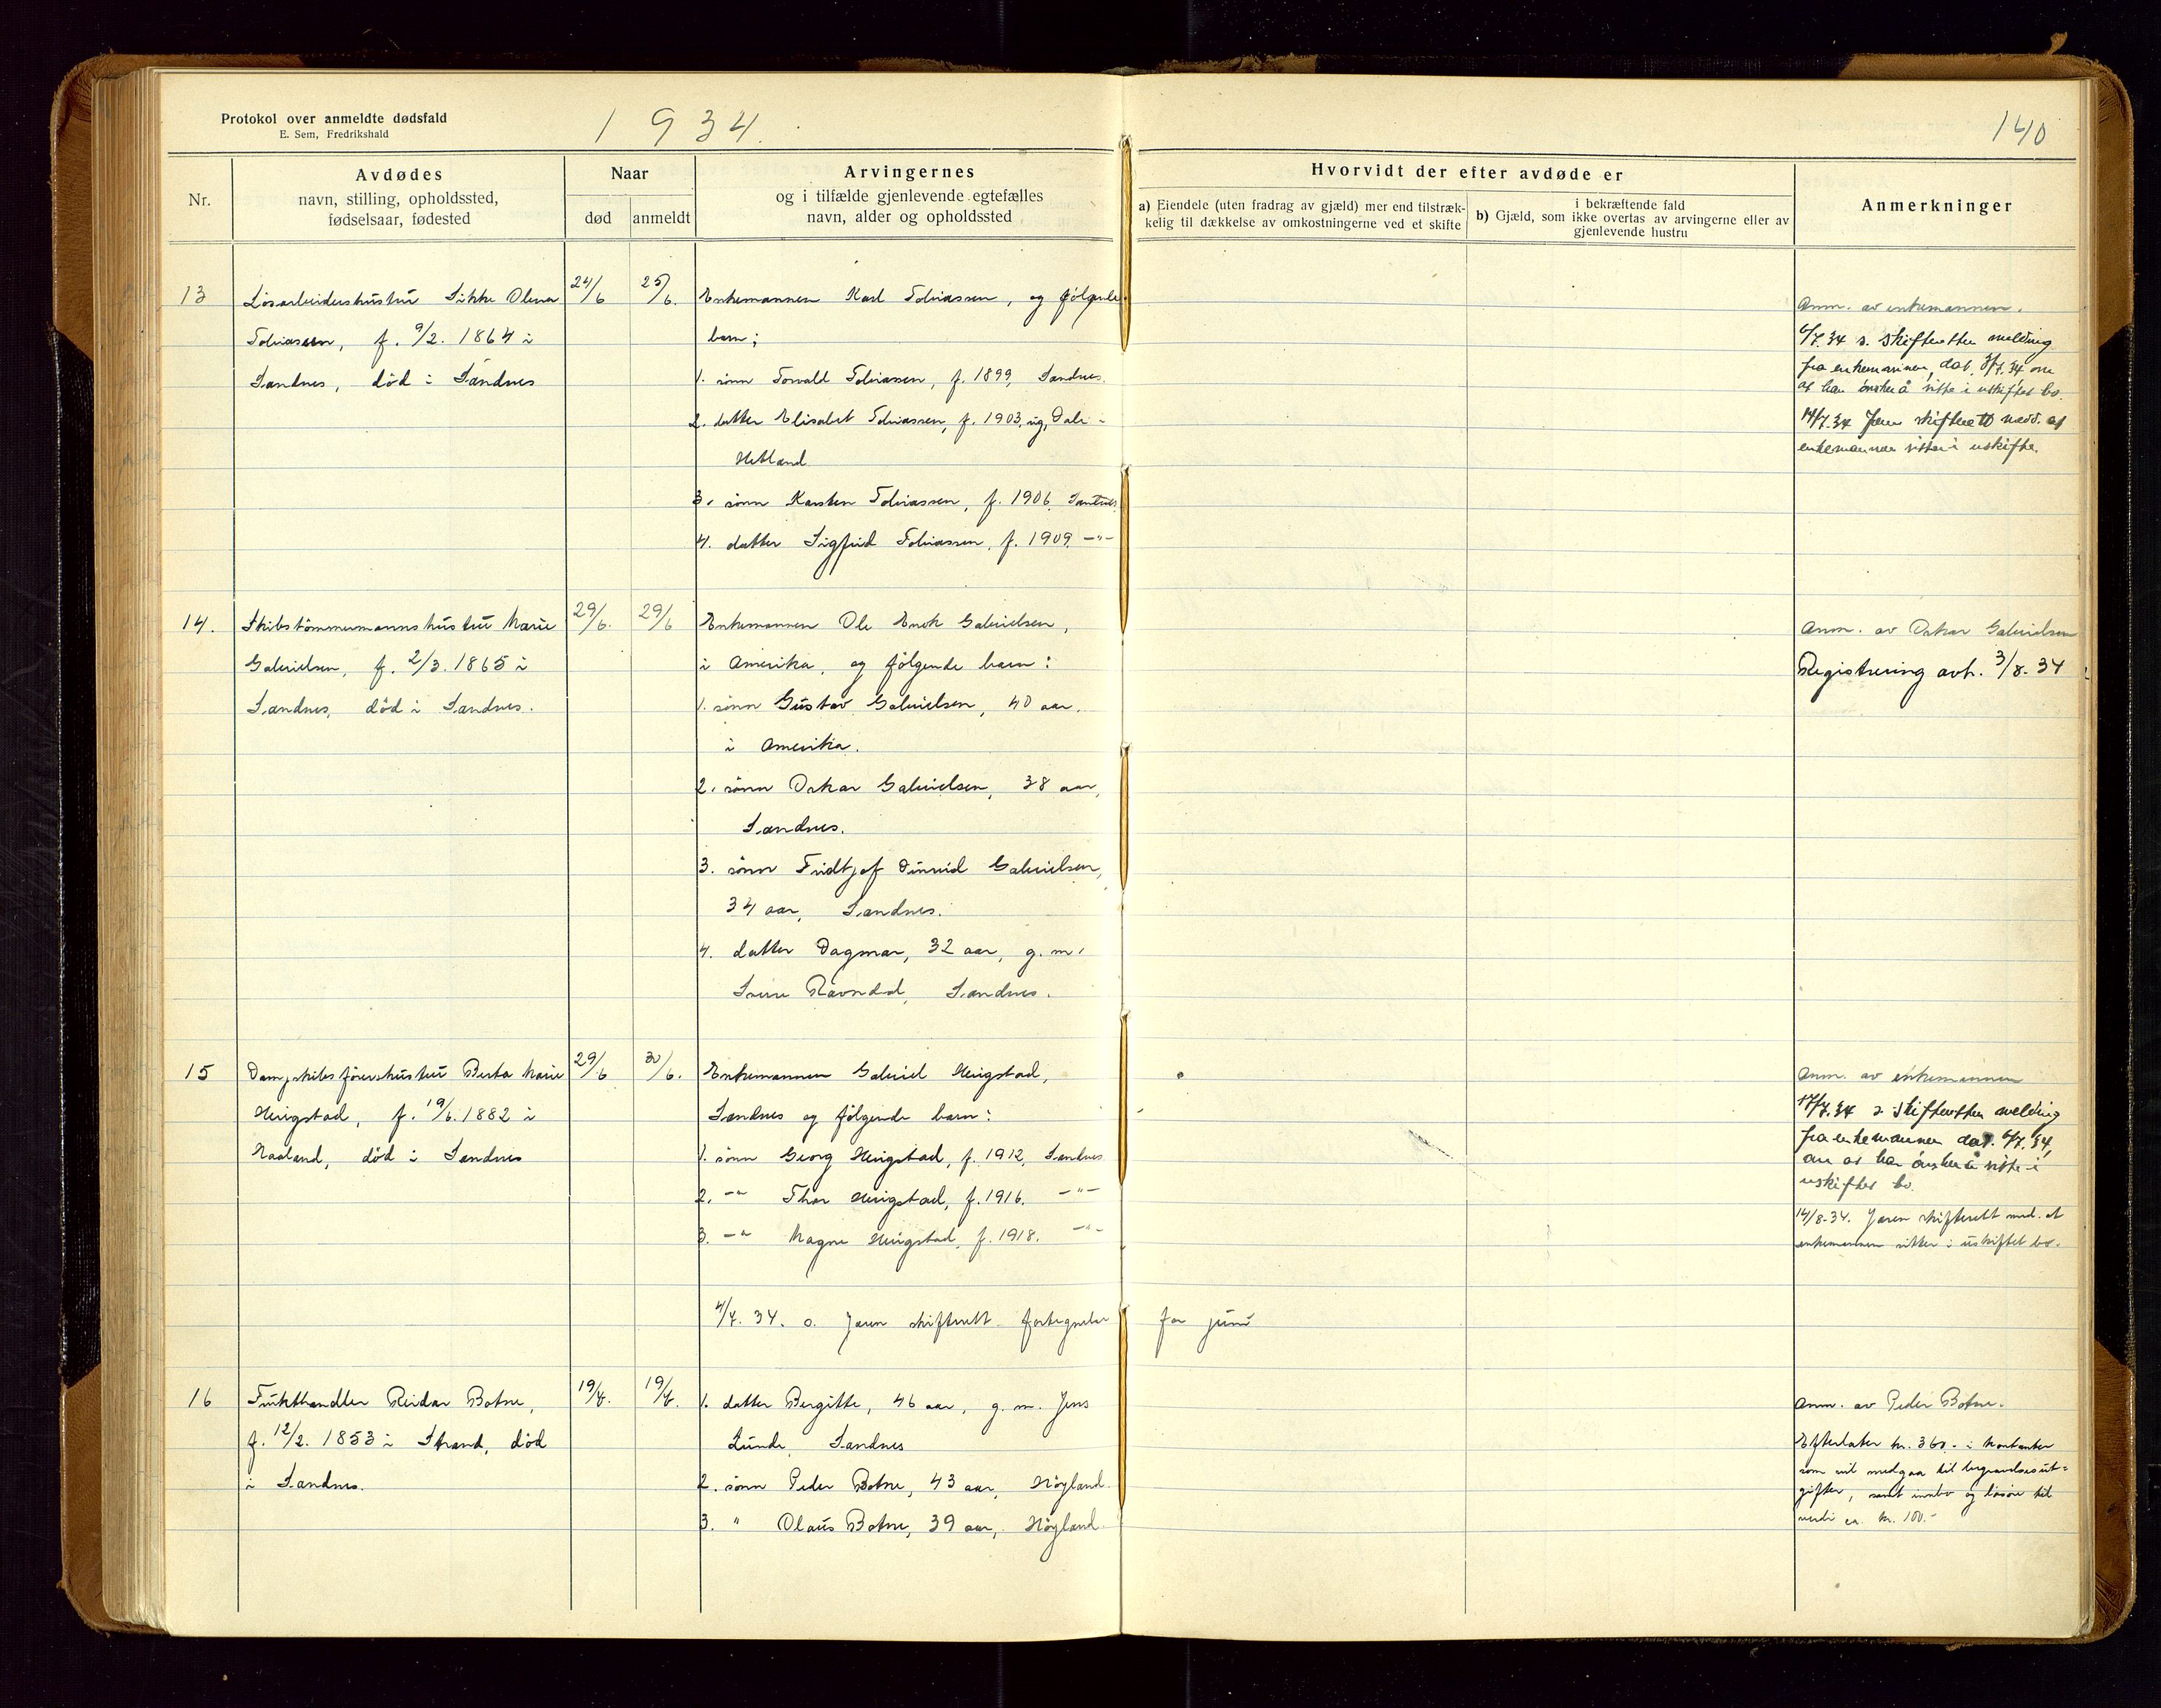 Protokol over anmeldte dødsfald
E. Sem, Fredrikshald
1934.
140
Nr.
Avdødes
navn, stilling, opholdssted,
fødselsaar, fødested
Naar
død
anmeldt
Arvingernes
og i tilfælde gjenlevende egtefælles
navn, alder og opholdssted
Hvorvidt der efter avdøde er
a) Eiendele (uten fradrag av gjæld) mer end tilstræk-
kelig til dækkelse av omkostningerne ved et skifte
i bekræftende fald
b) Gjæld, som ikke overtas av arvingerne eller av
gjenlevende hustru
Anmerkninger
13
Løsarbeidershustru Sikke Olena
Tobiassen, f. 9/2. 1864 i
Sandnes, død i Sandnes
24/6
25/6.
Enkemannen Karl Tobiassen, og følgende
barn;
1. sønn Torvald Tobiassen, f. 1899, Sandnes.
2. datter Elisabet Tobiassen, f. 1903, ug, Dale i
Hetland
3. sønn Karsten Tobiassen, f. 1906, Sandnes
4. datter Sigfrid Tobiassen, f. 1909. -"-
Anm. av enkemannen.
6/7.34 s. skifteretten melding
fra enkemannen, dat. 3/7.34 om
at han ønsker å sitte i uskiftet bo.
14/7.34 Jæren skifterett medd. at
enkemannen sitter i uskifte.
14.
Skibstømmermannshustru Marie
Gabrielsen, f. 2/3. 1865 i
Sandnes, død i Sandnes.
29/6.
29/6
Enkemannen Ole Enok Gabrielsen,
i Amerika, og følgende barn:
1. sønn Gustav Gabrielsen, 40 aar,
i Amerika.
2. sønn Oskar Gabrielsen, 38 aar,
Sandnes.
3. sønn Fridtjof Gabrielsen,
34 aar, Sandnes.
4. datter Dagmar, 32 aar, g. m.
Ravndal, Sandnes.
Anm. av Oskar Gabrielsen
Registrering avh. 3/8. 34
15
Dampskibsførershustru Berta Marie
Herigstad, f. 19/6. 1882 i
Haaland, død i Sandnes
29/6
30/6.
Enkemannen Gabriel Herigstad,
Sandnes og følgende barn:
1. sønn Georg Herigstad, f. 1912, Sandnes
2. -"- Thor Herigstad, f. 1916. -"-
3. -"- Magne Herigstad, f. 1918. -"-
Anm. av enkemannen
17/7.34 s. skifteretten melding
fra enkemannen dat. 6/7.34,
om at han ønsker å sitte i
uskiftet bo.
14/8-34. Jæren skifterett med. at
enkemannen sitter i uskiftet bo.
4/7. 34. s. Jæren skifterett fortegnelse for juni
16
Frukthandler Reidar Botne,
f. 12/2. 1853 i Strand, død
i Sandnes.
19/7.
19/7.
1. datter Bergitte, 46 aar, g. m. Jens
Lunde, Sandnes
2. sønn Peder Botne, 43 aar, Høyland.
3. " Olaus Botne, 39 aar, Høyland.
Anm. av Peder Botne.
Efterlater kr. 360.- i kontanter
som vil medgaa til begravelsesut-
gifter, samt innbo og løsøre til
verdi ca. kr. 100.-